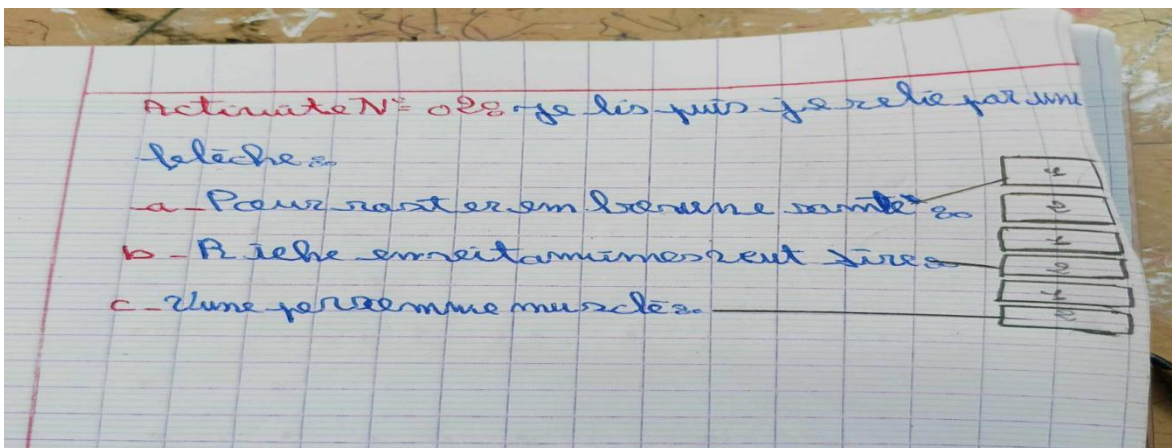 Activite N° 02: Je lis puis je relie par une
felèche:
1
a - Pour rester en bonne santé:
2
1
b - Riche en vitamines veut dire:
2
1
c - Une personne musclée:
2